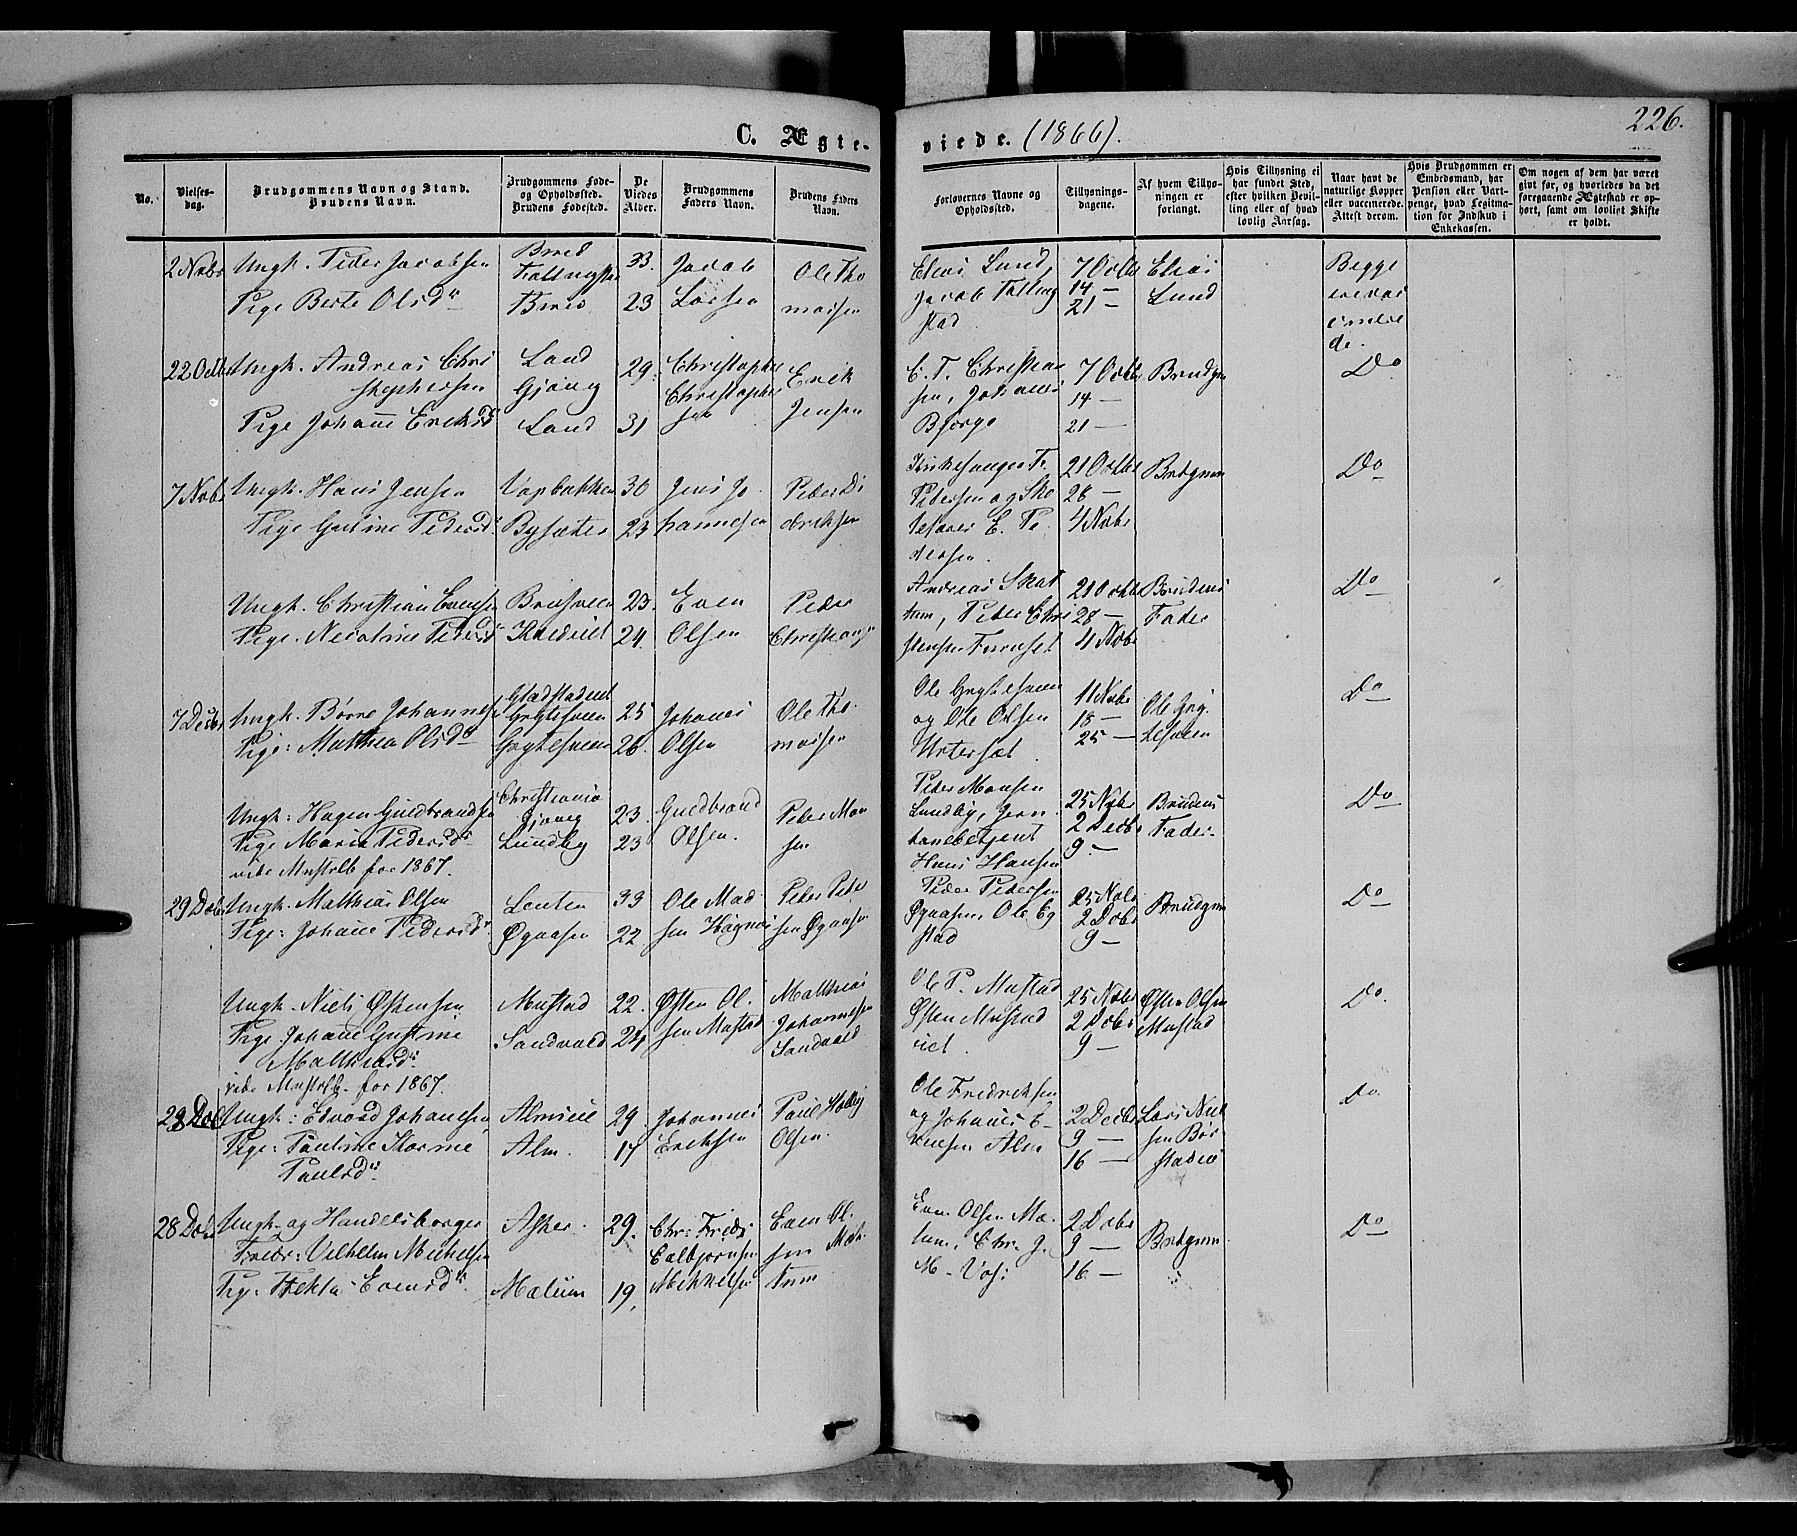 C. Ægte-
viede. (1866).
226.
No.
Vielses-
dag.
Brudgommens Navn og Stand.
Brudens Navn.
Brudgommens Føde-
og Opholdssted.
Brudens Fødested.
De
Viedes
Alder.
Brudgommens
Faders Navn.
Brudens Faders
Navn.
Forlovernes Navne og
Opholdssted.
Tillysnings-
dagene.
Af hvem Tillys-
ningen er
forlangt.
Hvis Tillysning ei
har fundet Sted,
efter hvilken Bevil-
ling eller af hvad
lovlig Aarsag.
Naar havt de
naturlige Kopper
eller vaccinerede.
Attest derom.
Hvis Brudgommen er
Embedsmand, har
Pension eller Vart-
penge, hvad Legitima-
tion for Indskud i
Enkekassen.
Om nogen af dem har været
givt før, og hvorledes da det
foregaaende Ægteskab er op-
hørt, samt om lovligt Skifte
er holdt.
2 Novbr
Ungk. Peder Jacobsen
Pige Berte Olsdr
Bred
Bred
33.
23
Jacob
Larsen
Ole Tho
masen
Elias Lund,
Jacob Talling
stad
7 Octbr
14 —
21 —
Elias
Lund
Begge
de.
22 Octbr
Ungk. Andreas Chri
stophersen
Pige Johane Eriksdr
Land
Gjøvig
Land
29.
31
Christopher
Christopher
sen
Erik
Jensen
C. T. Christian
sen, Johanes
Bjørge
7 Octbr
14 —
21 —
Brudgm
Do
7 Novbr
Ungk. Hans Jensen
Pige Gustine Pedersdr
Bysæter
30
23
Jens Jo
hannesen
Peder Di
driksen
Kirkesanger Fr.
Pedersen og Sko
lelærer E. Pe
dersen.
21 Octbr
28 —
4 Novbr
Brdgmn
Do
Ungk. Christian Evensen
Pige. Nicoline Pedersdr
23.
24.
Even
Olsen
Peder
Christiansen
Andreas Skat
tum, Peder Chri
stensen Furuset
21 Octbr
28 —
4 Novbr
Brudens
Fader
Do
7 Decbr
Ungk. Børre Johannesen
Pige: Mathea Olsdr
Grythesveen
Grythesveen
25
26.
Johanes
Olsen
Ole Tho.
masen
Ole Grythesveen
og Ole Olsen
11 Novbr
18 —
25 —
Ole Gry.
tesveen
Do
Ungk: Hagen Guldbrandsen
Pige Maria Pedersdr
vide Ministrlb for 1867.
Christiania
Gjøvig
Lundby
23.
23
Guldbrand
Olsen.
Peder Mon
sen
Peder Monsen
Lundby, Jern
banebetjent
Hans Hansen
25 Novbr
2 Decbr
9 —
Brudens
Fader.
Do
29 Dcbr
Ungk. Mathias Olsen
Pige: Johane Pedersdr
Lenten
Øgaasen
33
22
Ole Mad
sen
Peder Peder
sen Øgaasen
Peder Pedersen
Øgaasen, Ole Eg
stad
25 Novbr
2 Dcbr
9 —
Brudgm
Do
Ungk. Niels Østensen
Pige Johane Gustine
Mathiasdr.
vide Ministrlb. for 1867.
Mustad
Sandvold
22.
24
Østen Ol.
sen Mustad
Mathias
Johannesen
Sandvold
Ole P. Mustad
Østen Mustad
eiet.
25 Novbr
2 Dcbr
9 —
Østen Olsen
Mustad
Do.
29 Dcbr
Ungk: Edvard Johansen
Pige: Pauline Karine
Paulsdr.
Almseie
Alm.
29.
17
Johannes
Eriksen
Paul
Olsen.
Ole Fredriksen
og Johanes E-
riksen Alm
2 Decbr
9 —
16 —
Lars Niel
sen Bør
stadeie
Do.
28 Dcbr
Ungk. og Handelsborger
Fredr: Vilhelm Michelsen
Pige: Thekla Evensdr.
Asker.
Mælum
29.
19,
Chr: Fredr
Michelsen
Even Ol.
sen Mæ
lum
Even Olsen Mæ.
lum, Chr. J.
M. Vos:
2 Dcbr
9 —
16 —
Brdgmn.
Do